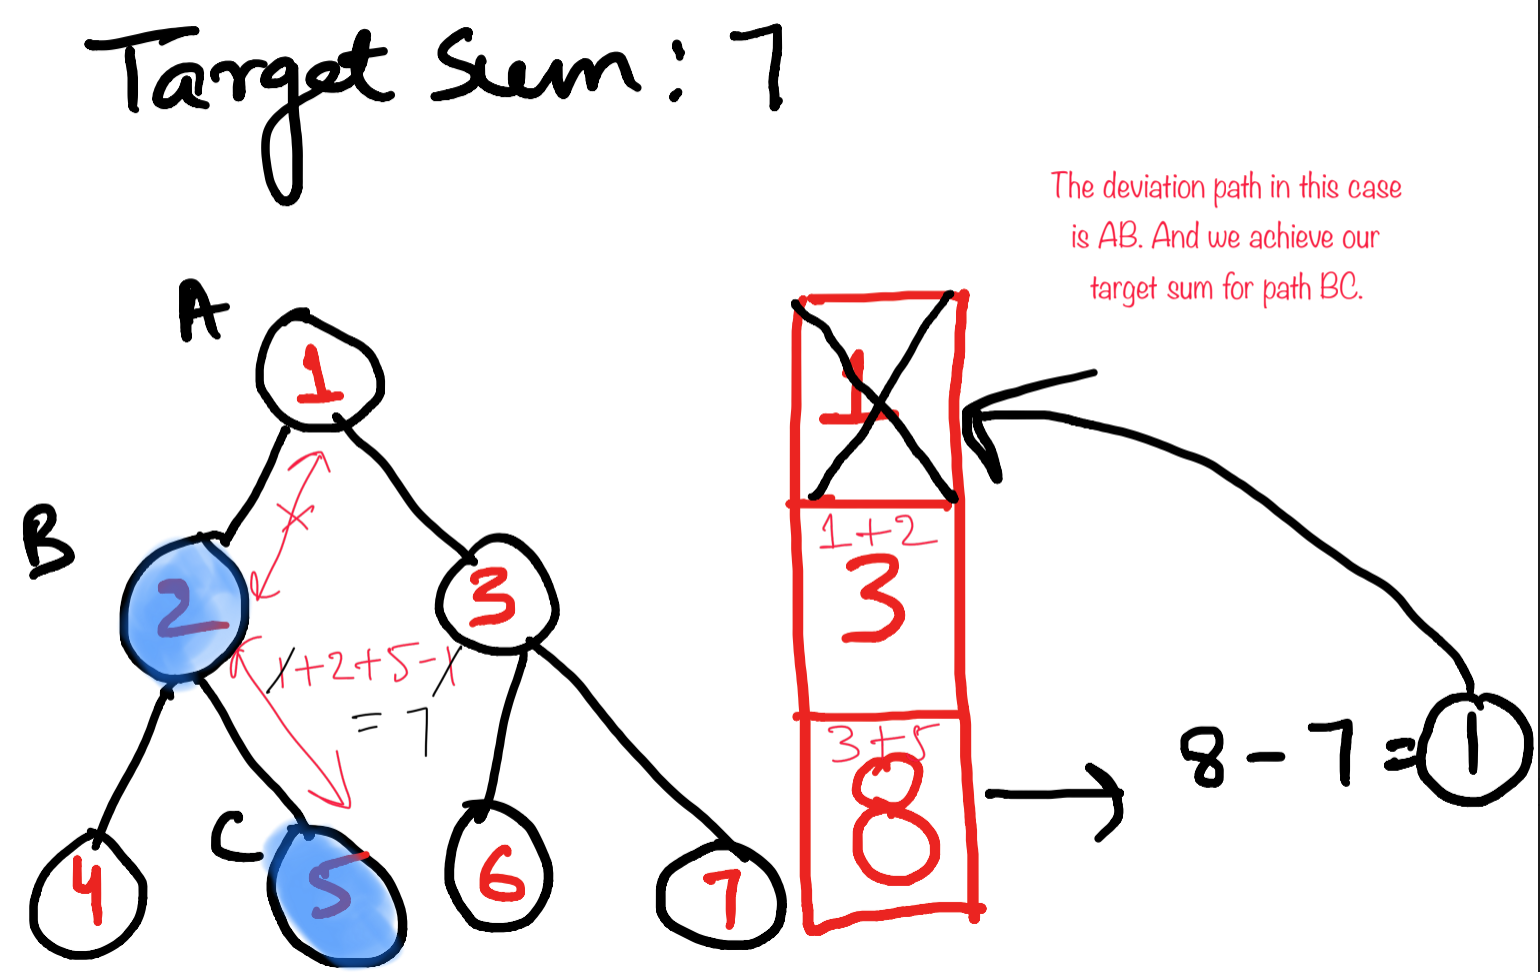 Target Sum: 7
The deviation path in this case
is AB. And we achieve our
target sum for path BC.
A
1
B
2
3
1+2+5-1
= 7
C
4
5
6
7
1
1+2
3
3+5
8
8-7=1